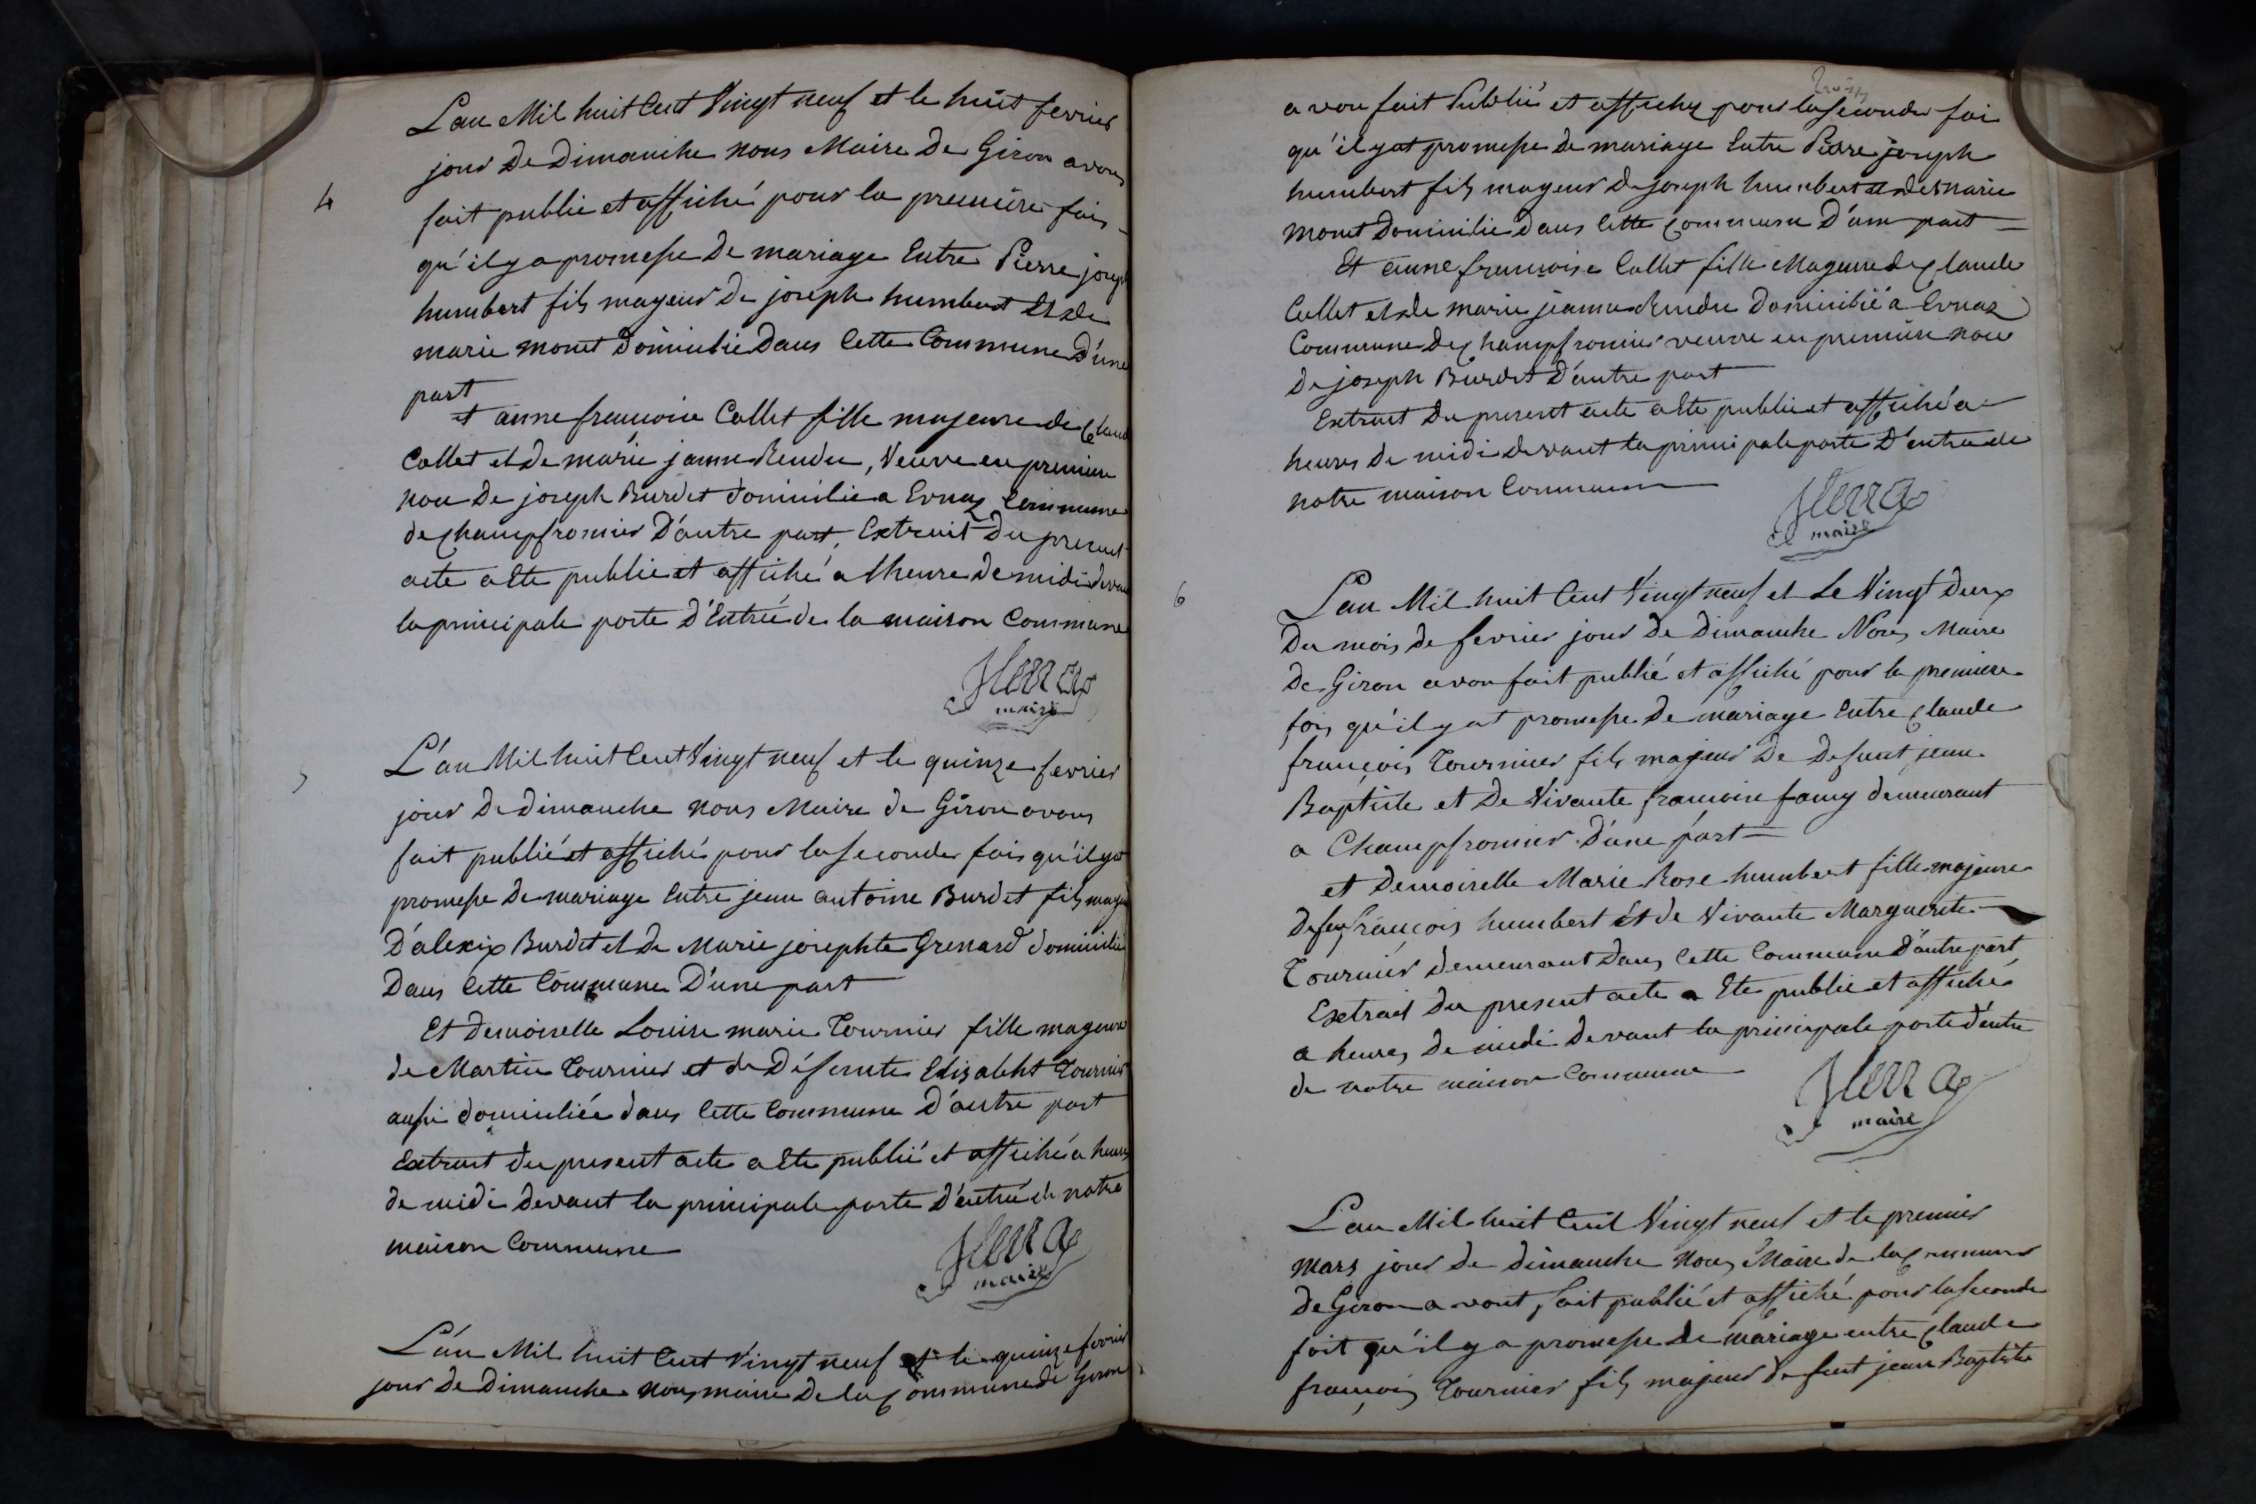 4
L'an Mil huit Cent Vingt neuf et le huit fevrier
jour De Dimanche nous Maire De Giron avons
fait publié et affiché pour la premiere fois
qu'il y a promesse De mariage Entre Pierre joseph
humbert fils mayeur De joseph humbert Et de
marie monet Domicilié Dans Cette Commune D'une
part
et anne francoise Collet fille majeure de Claude
Collet et de marie jeanne Rendu, Veuve en premiere
noce De joseph Burdet domicilié a Evuaz Commune
de Champfromier D'autre part, Extrait Du present
acte a Eté publié et affiché a lheure De midi devant
la principale porte D'Entrée de la maison Commune
maire
5
L'an Mil huit Cent Vingt neuf et le quinze fevrier
jour De dimanche nous Maire de Giron avons
fait publié et affiché pour la seconde fois qu'il ya
promesse De mariage Entre jean antoine Burdet fils mayeur
D'alexix Burdet et De Marie josephte Grenard domicilié
Dans Cette Commune D'une part
Et Demoiselle Louise marie Tournier fille mayeure
de Martin Tournier et de Défunte Elisabeht Tournier
aussi domiciliée dans Cette Commune D'autre part
Extrait du present acte a Eté publié et affiché a heures
de midi devant la principale porte D'entrée de notre
maison Commune
maire
L'an Mil huit Cent Vingt neuf et le quinze fevrier
jour De Dimanche nous maire De la Commune de Giron
avon fait Publié et affiché pour la seconde foi
qu'il y at promesse De mariage Entre Pierre joseph
humbert fils mayeur De joseph humbert et de marie
monet Domicilié Dans Cette Commune D'une part
Et anne francoise Collet fille Mayeure de Claude
Collet et de marie jeanne Rendu Domicilié a Evuaz
Commune de Champfromier veuve en premiere noce
De joseph Burdet D'autre part
Extrait Du present acte a Eté publié et affiché a
heures De midi devant la principale porte D'entrée de
notre maison Commune
maire
6
L'an Mil huit Cent Vingt neuf et Le Vingt Deux
Du mois de fevrier jour De Dimanche Nous Maire
De Giron avon fait publié et affiché pour la premiere
fois qu'il y at promesse De mariage Entre Claude
françois Tournier fils majeur De Defunt jean
Baptiste et De Vivante francoise famy demeurant
a Champfromier D'une part
et Demoiselle Marie Rose humbert fille majeure
De feu françois humbert et de Vivante Marguerite
Tournier demeurant Dans Cette Commune D'autre part
Extrait du present acte a Eté publié et affiché
a heures De midi Devant la principale porte d'entré
de notre maison Commune
maire
L'an Mil huit Cent Vingt neuf et le premier
mars jour De dimanche nous Maire de la Commune
De Giron avont fait publié et affiché pour la seconde
foit qu'il y a promesse De mariage entre Claude
françois Tournier fils majeur Defunt jean Baptiste